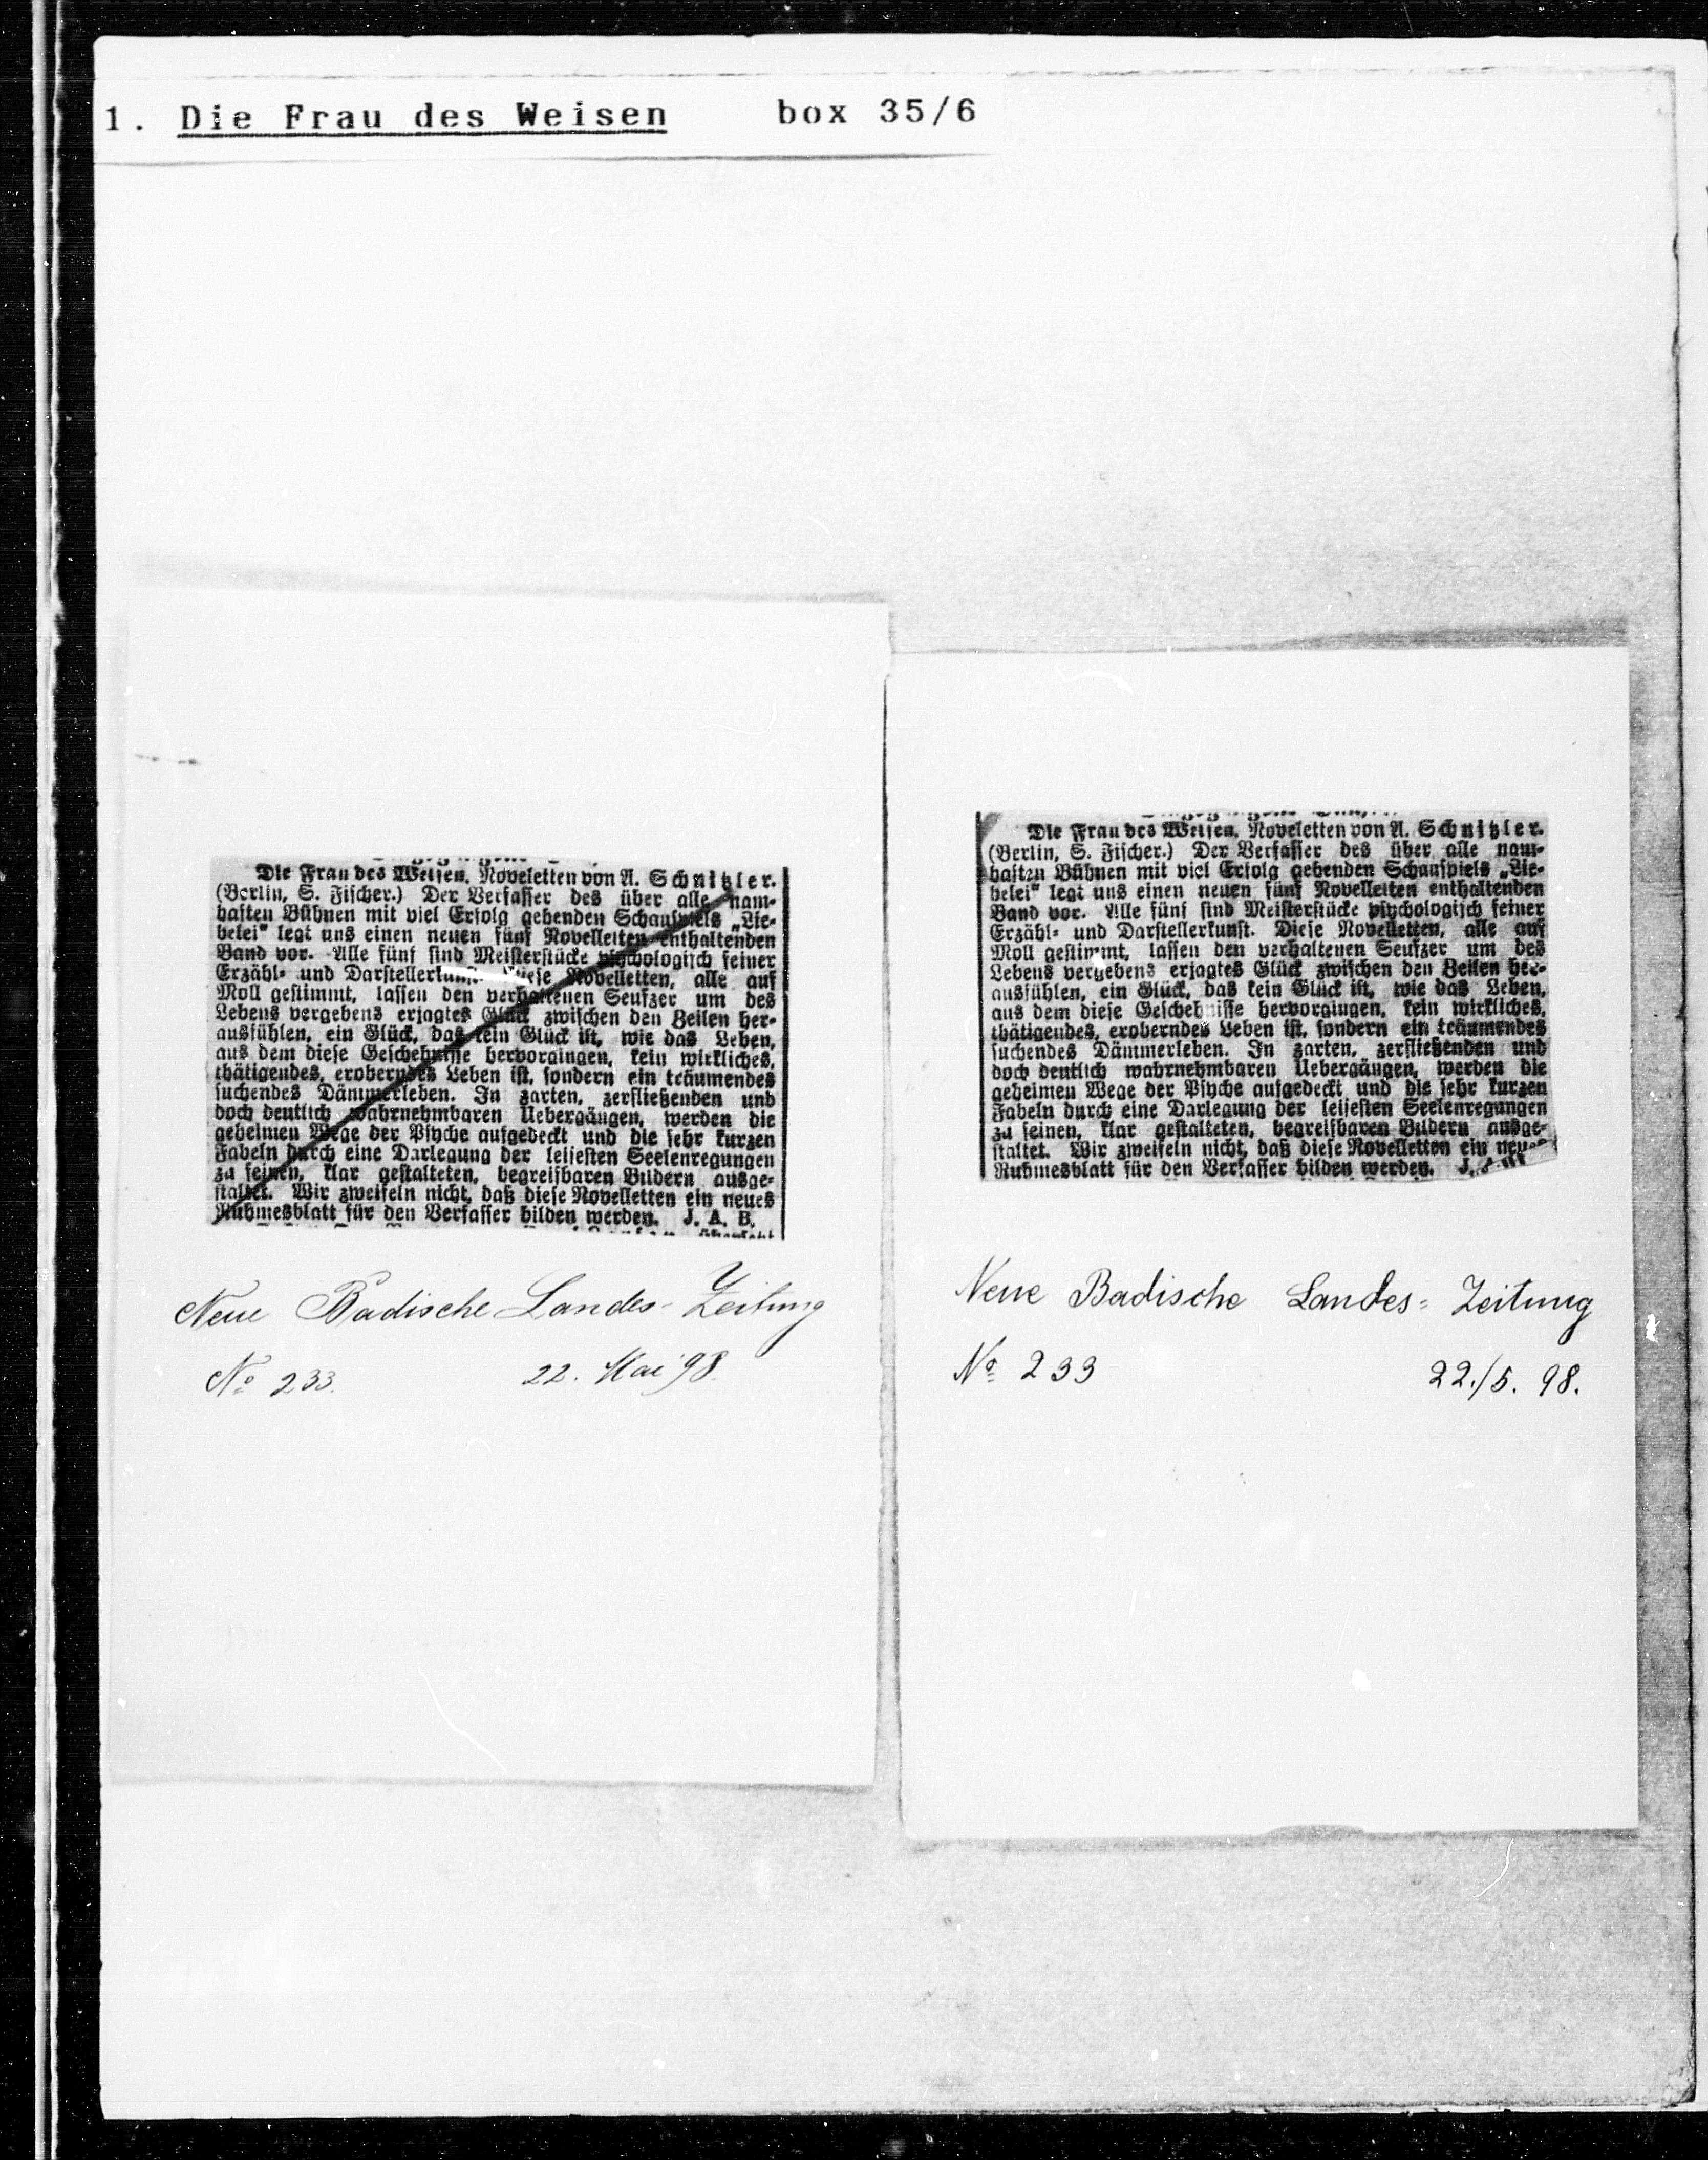 1. Die Frau des Weisen box 35/6
Die Frau des Weisen. Noveletten von A. Schnitzler.
(Berlin, S. Fischer.) Der Verfasser des über alle nam-
haften Bühnen mit viel Erfolg gehenden Schauspiels „Lie-
belei" legt uns einen neuen fünf Novelletten enthaltenden
Band vor. Alle fünf sind Meisterstücke psychologisch feiner
Erzähl- und Darstellerkunst. Diese Novelletten, alle auf
Moll gestimmt, lassen den verhaltenen Seufzer um des
Lebens vergebens erjagtes Glück zwischen den Zeilen her-
ausfühlen, ein Glück, das kein Glück ist, wie das Leben,
aus dem diese Geschehnisse hervorgingen, kein wirkliches,
thätigendes, eroberndes Leben ist, sondern ein träumendes
suchendes Dämmerleben. In zarten, zerfließenden und
doch deutlich wahrnehmbaren Uebergängen, werden die
geheimen Wege der Psyche aufgedeckt und die sehr kurzen
Fabeln durch eine Darlegung der leisesten Seelenregungen
zu feinen, klar gestalteten, begreifbaren Bildern ausge-
staltet. Wir zweifeln nicht, daß diese Novelletten ein neues
Ruhmesblatt für den Verfasser bilden werden. J. A. B.
Neue Badische Landes-Zeitung
No 233. 22. Mai '98.
Die Frau des Weisen. Noveletten von A. Schnitzler.
(Berlin, S. Fischer.) Der Verfasser des über alle nam-
haften Bühnen mit viel Erfolg gehenden Schauspiels „Lie-
belei" legt uns einen neuen fünf Novelletten enthaltenden
Band vor. Alle fünf sind Meisterstücke psychologisch feiner
Erzähl- und Darstellerkunst. Diese Novelletten, alle auf
Moll gestimmt, lassen den verhaltenen Seufzer um des
Lebens vergebens erjagtes Glück zwischen den Zeilen her-
ausfühlen, ein Glück, das kein Glück ist, wie das Leben,
aus dem diese Geschehnisse hervorgingen, kein wirkliches,
thätigendes, eroberndes Leben ist, sondern ein träumendes
suchendes Dämmerleben. In zarten, zerfließenden und
doch deutlich wahrnehmbaren Uebergängen, werden die
geheimen Wege der Psyche aufgedeckt und die sehr kurzen
Fabeln durch eine Darlegung der leisesten Seelenregungen
zu feinen, klar gestalteten, begreifbaren Bildern ausge-
staltet. Wir zweifeln nicht, daß diese Novelletten ein neues
Ruhmesblatt für den Verfasser bilden werden. J.
Neue Badische Landes-Zeitung
No 233 22./5. 98.